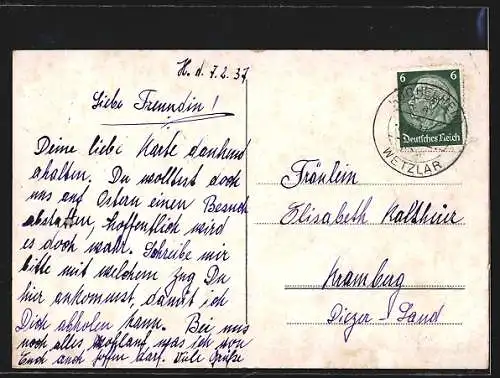 H. d. 7.2.37
Liebe Freundin!
Deine liebe Karte dankend
erhalten. Du wolltest doch
uns auf Ostern einen Besuch
abstatten, hoffentlich wird
es doch wahr. Schreibe mir
bitte mit welchem Zug Du
hier ankommst, damit ich
Dich abholen kann. Bei uns
noch alles wohlauf, was ich von
Euch auch hoffen darf. Viele Grüße
6 6
Deutsches Reich
WETZLAR
Fräulein
Elisabeth
Kramberg
Diezer-Land